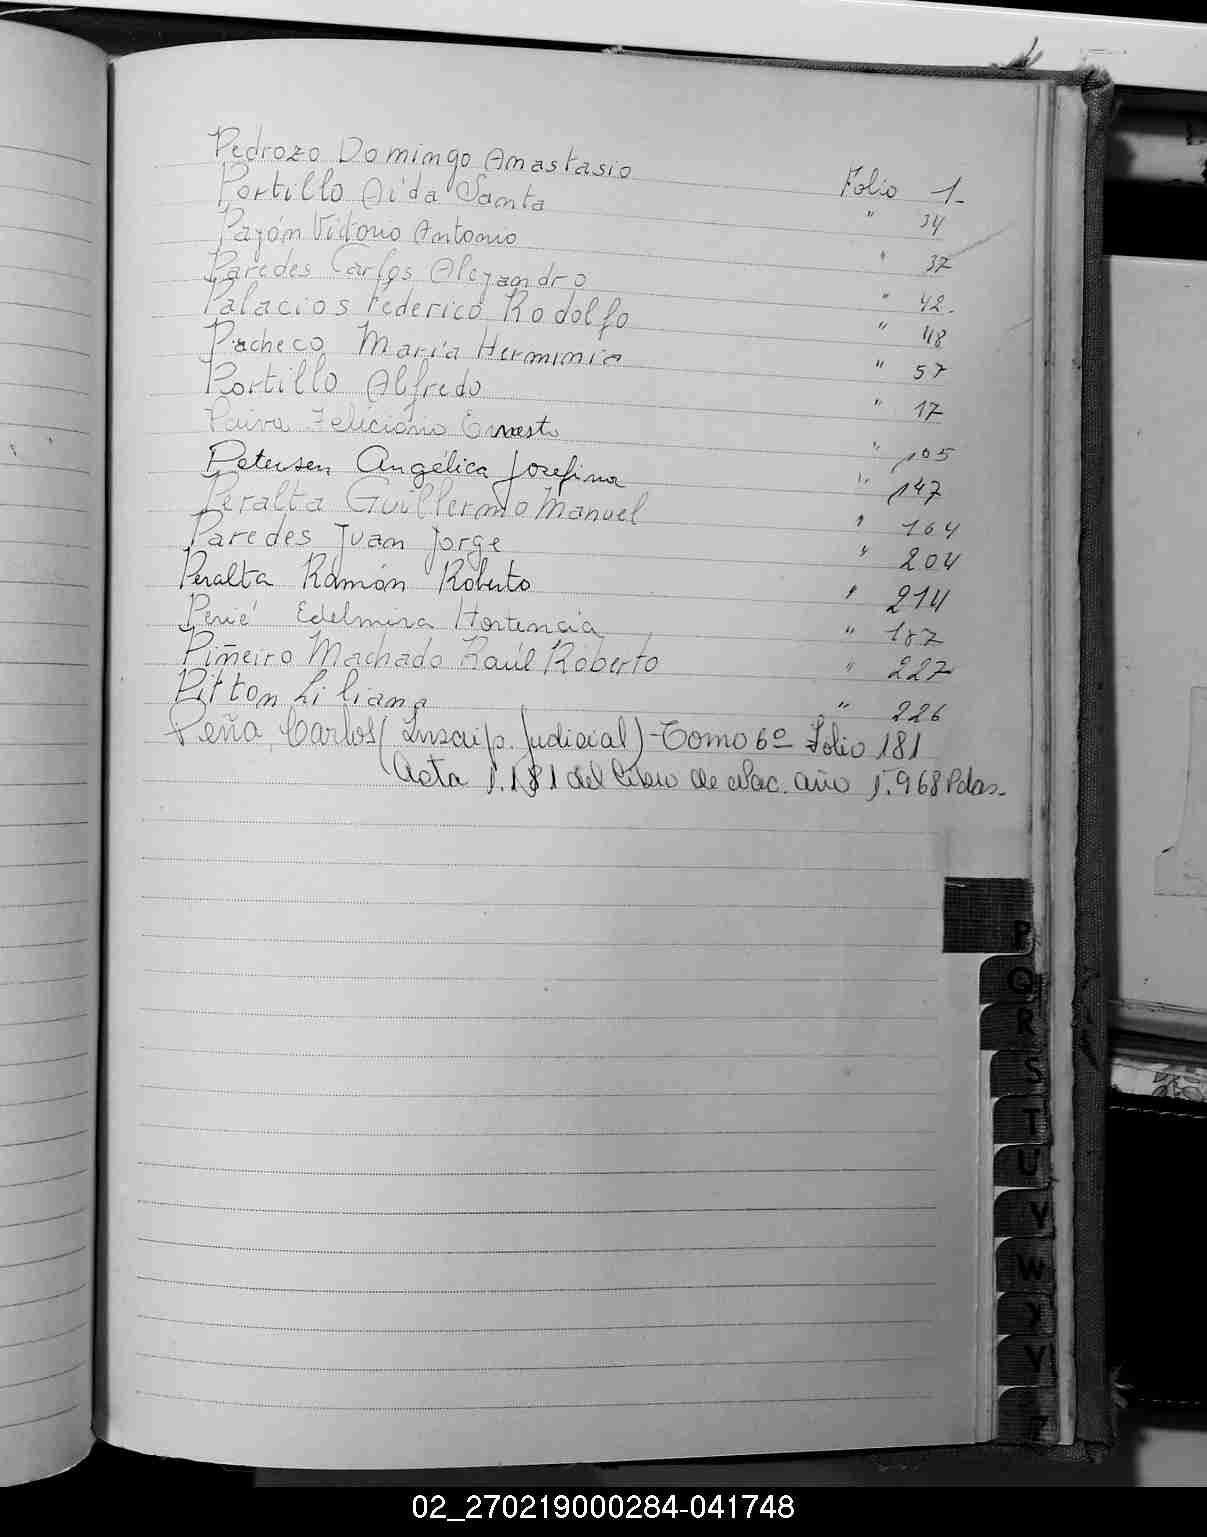 Pedrozo Domingo Anastasio Folio 1-
Portillo Aída Santa " 34
Payón Vitorio Antonio " 37
Paredes Carlos Alejandro " 42-
Palacios Federico Rodolfo " 48
Pacheco María Herminia " 57
Portillo Alfredo " 17
Paiva Feliciano Ernesto " 105
Petersen Angélica Josefina " 147
Peralta Guillermo Manuel " 164
Paredes Juan Jorge " 204
Peralta Ramón Roberto " 214
Perié Edelmira Hortencia " 187
Piñeiro Machado Raúl Roberto " 227
Pitton Liliana " 226
Peña Carlos (Inscrip. Judicial) - Tomo 6º Folio 181
(Acta 1.181 del libro de Nac. año 1.968 Pdas.-
P
Q
R
S
T
U
V
W
Y
Z
02_270219000284-041748